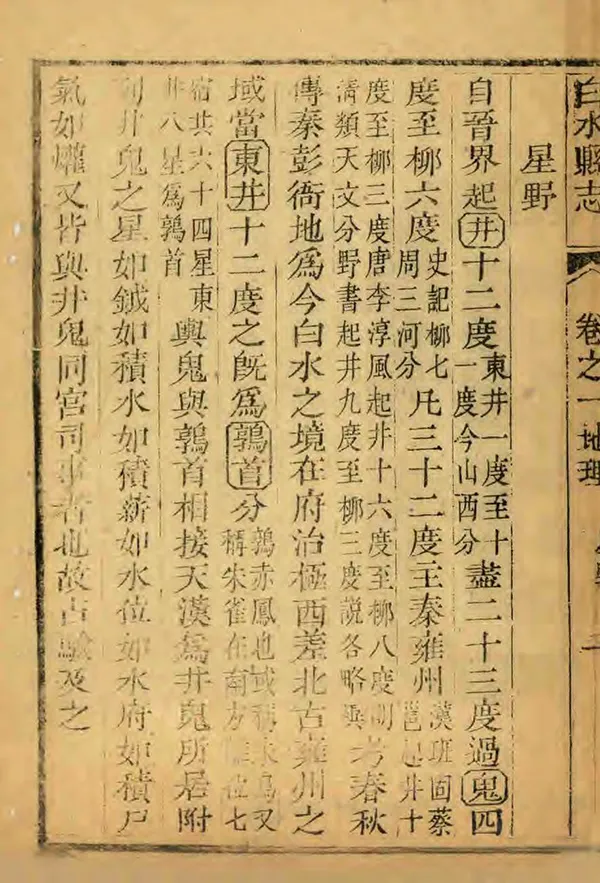 白水縣志 卷之一 地理
星野
自晉界起井十二度東井一度至十一度今山西分盡二十三度過鬼四
度至柳六度史記柳七周三河分凡三十二度王秦雍州漢班固蔡邕起井十
度至柳三度唐李淳風起井十六度至柳八度明清類天文分野書起井九度至柳三度說各略異考春秋
傳秦彭衙地爲今白水之境在府治極西差北古雍州之
域當東井十二度之既爲鶉首分鶉赤鳳也或稱朱鳥又稱朱雀在南方位七
宿共六十四星東井八星爲鶉首輿鬼與鶉首相接天漢爲井鬼所居附
井鬼之星如鉞如積水如積薪如水位如水府如積尸
氣如爟又皆與井鬼同宮司事者也故占驗及之